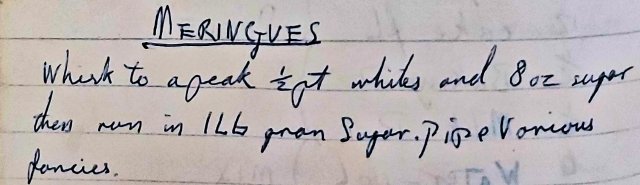 MERINGUES
Whisk to a peak ½pt whites and 8oz sugar
then run in 1Lb gran Sugar. Pipe Various
fancies.